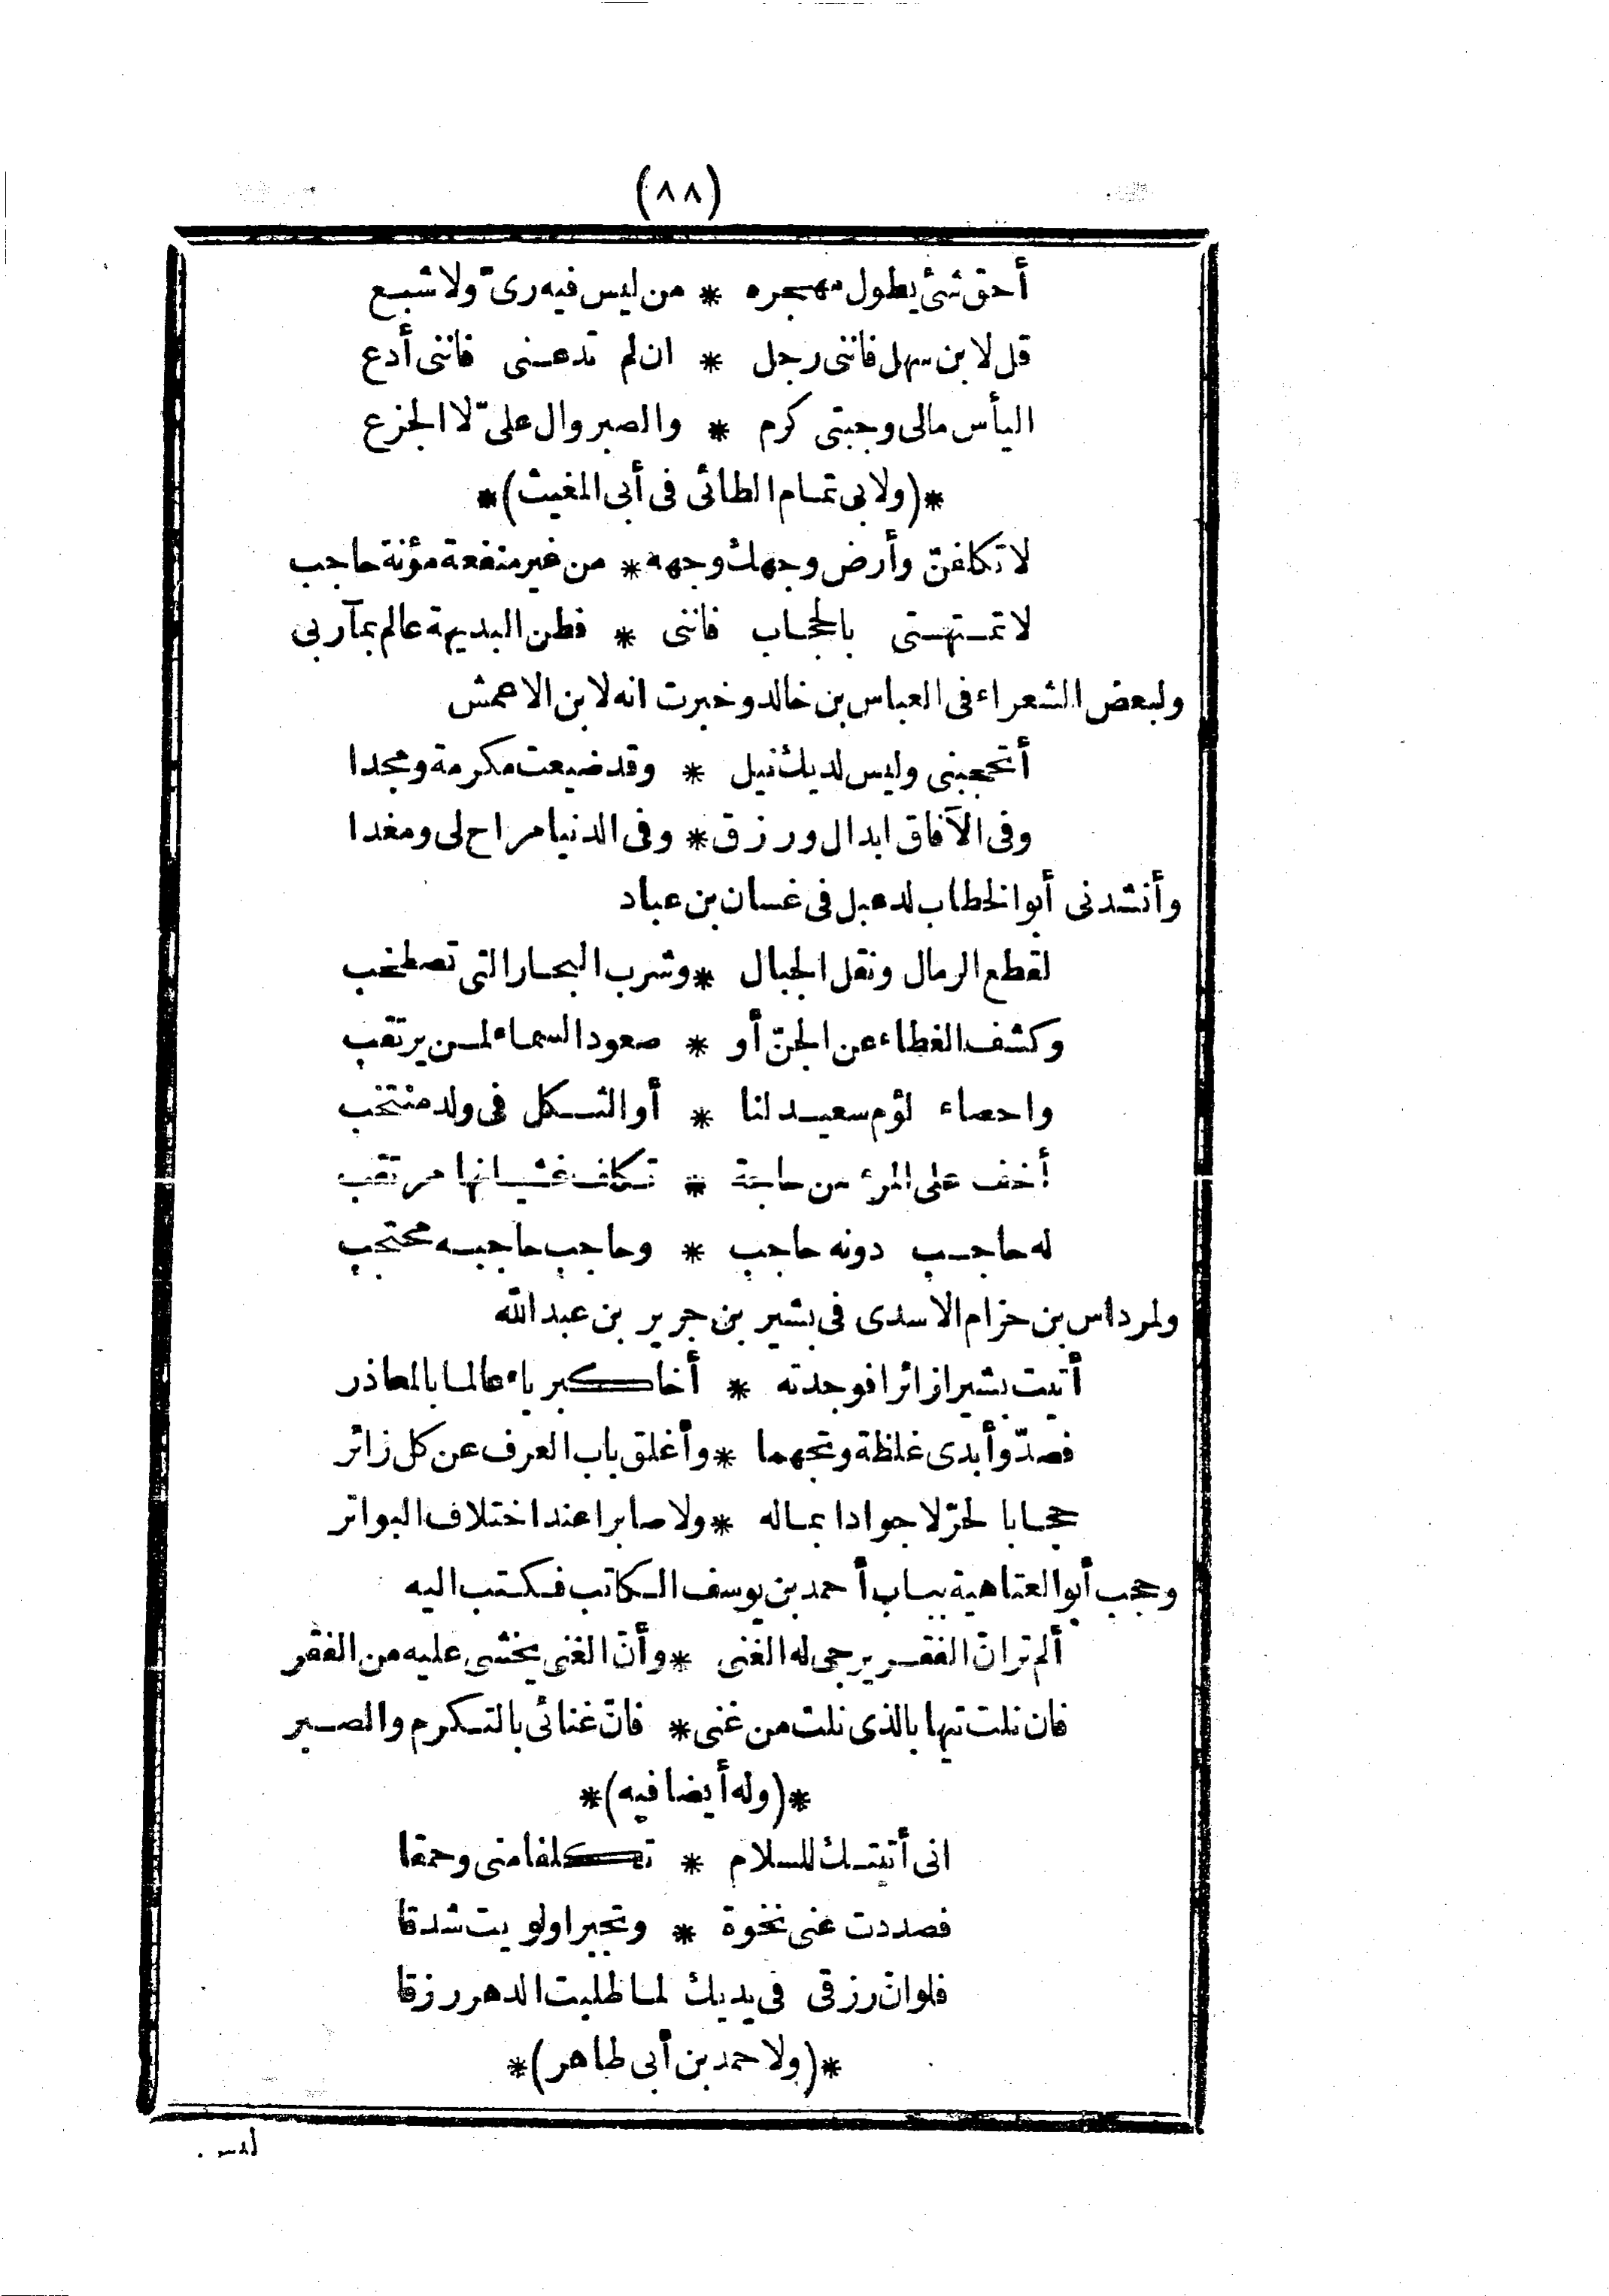 (٨٨)
أحق شئ بطول مهجره * من ليس فيه رىّ ولا شبع
قل لابن سهل فاننى رجل * ان لم تدعنى فاننى أدع
اليأس مالى وجبتى كرم * والصبر وال علىّ لا الجزع
*(ولابى تمام الطائى فى أبى المغيث)*
لا تكلفنّ وأرض وجهك وجهه * من غير منفعة مؤنة حاجب
لا تمتهنى بالحجاب فاننى * فطن البديهة عالم بمآربى
ولبعض الشعراء فى العباس بن خالد وخبرت انه لابن الاعمش
أتحجبنى وليس لديك نيل * وقد ضيعت مكرمة ومجدا
وفى الآفاق ابدال ورزق * وفى الدنيا مراح لى ومغدا
وأنشدنى أبو الخطاب لدعبل فى غسان بن عباد
لقطع الرمال ونقل الجبال * وشرب البحار التى تصطخب
وكشف الغطاء عن الجنّ أو * صعود السماء لمن يرتقب
واحصاء لؤم سعيد لنا * أو الثكل فى ولد منتخب
أخف على المرء من حاجة * تكلف غشيانها مرتقب
له حاجب دونه حاجب * وحاجب حاجبه محتجب
ولمرداس بن حزام الاسدى فى بشير بن جرير بن عبد الله
أتيت بشيرا زائرا فوجدته * أخا كبرياء عالما بالمعاذر
فصدّ وأبدى غلظة وتجهما * وأغلق باب العرف عن كل زائر
حجابا لحرّ لا جوادا بماله * ولا صابرا عند اختلاف البواتر
وحجب أبو العتاهية بباب أحمد بن يوسف الكاتب فكتب اليه
ألم تر انّ الفقر يرجى له الغنى * وأنّ الغنى يخشى عليه من الفقر
فان نلت تيها بالذى نلت من غنى * فانّ غنائى بالتكرم والصبر
*(وله أيضا فيه)*
انى أتيتك للسلام * تكلفا منى وحمقا
فصددت عنى نخوة * وتجبرا ولويت شدقا
فلو انّ رزقى فى يديك لما طلبت الدهر رزقا
*(ولاحمد بن أبى طاهر)*